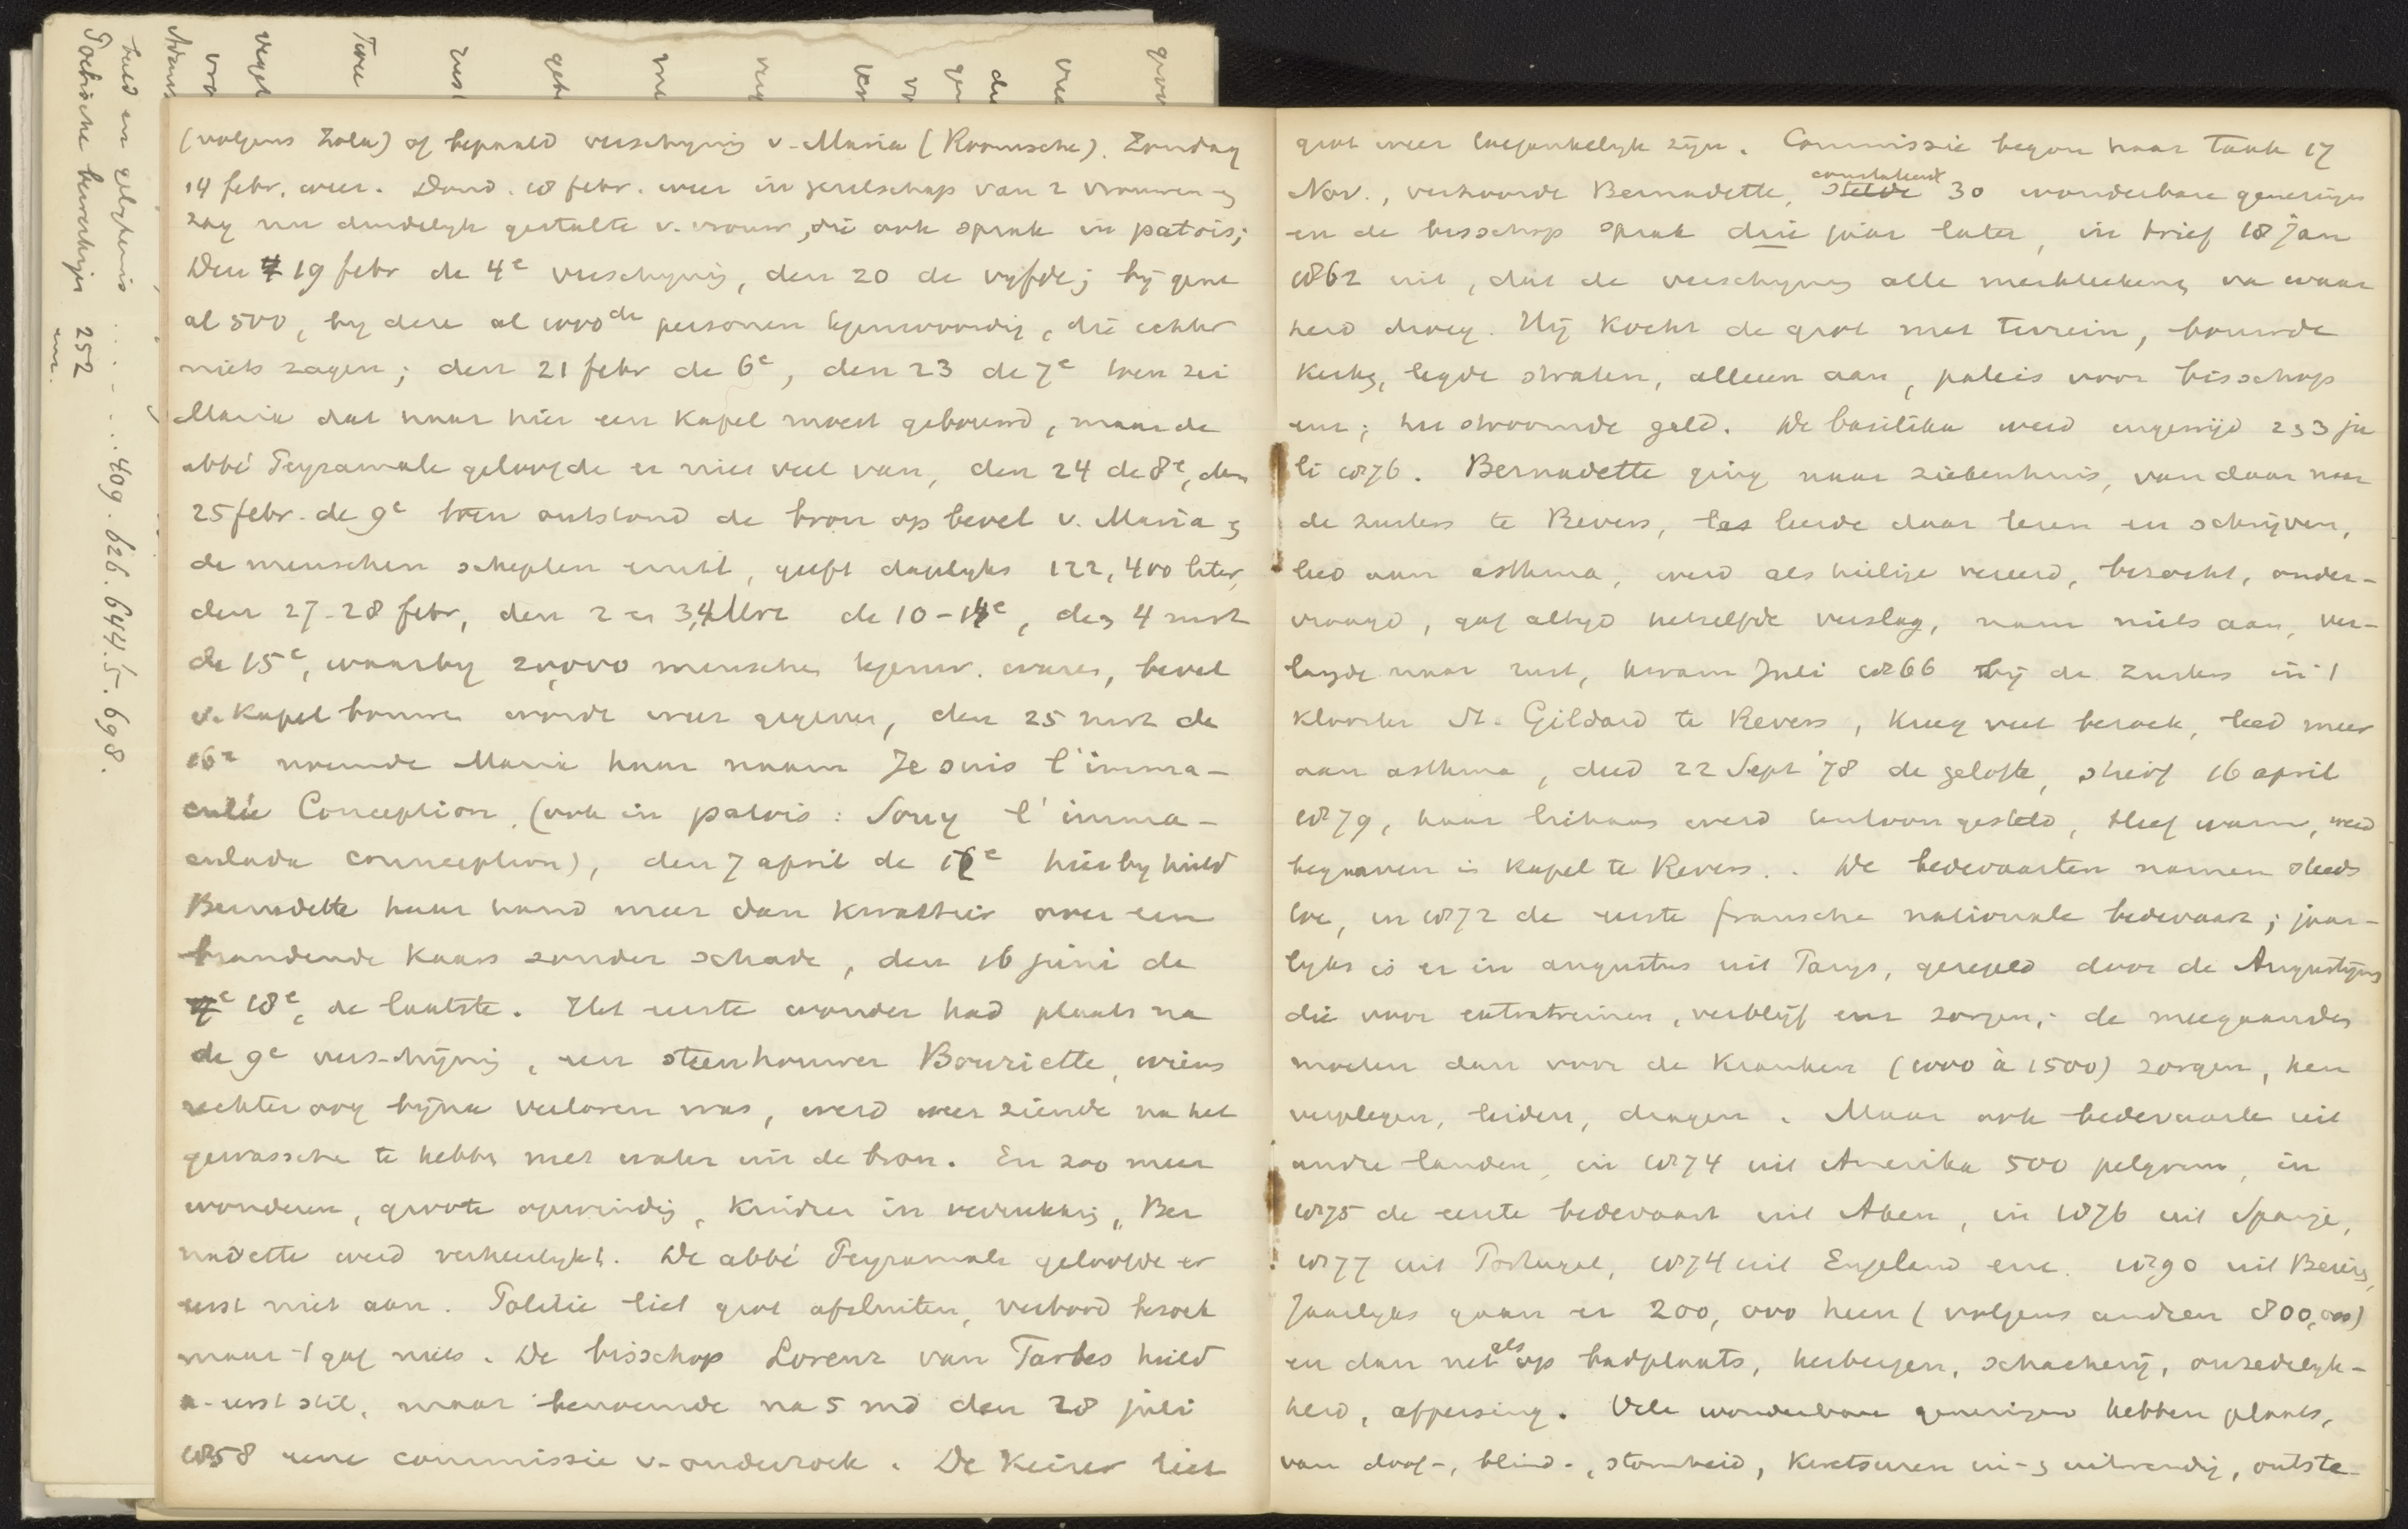 (volgens Zola) of bepaald verschijning v. Maria (Roomsche). Zondag
14 febr. weer. Dond. 18 febr. weer in gezelschap van 2 vrouwen en
zag nu duidelyk gestalte v. vrouw, die ook sprak in patois;
Den 19 febr de 4e verschyning, den 20 de vyfde; by gene
al 500, by deze al 1000de personen tegenwoordig, die echter
niets zagen; den 21 febr de 6e, den 23 de 7e toen zei
Maria dat naar hier een Kapel moest gebouwd, maar de
abbé Peyramale geloofde er niet veel van, den 24 de 8e, den
25 febr. de 9e toen ontstond de bron op bevel v. Maria en
de menschen schepten eruit, geeft daaglyks 122,400 liter,
den 27-28 febr, den 2 en 3,4 Mrt de 10-14e, den 4 mrt
de 15e, waarby 20,000 menschen tegenw. waren, bevel
v. Kapel bouwen wordt weer gegeven, den 25 mrt de
16e noemde Maria haar naam Je suis l'imma-
culée Conception, (ook in patois: Souy l'imma-
culada counceptiou), den 7 april de 17e hierby hield
Bernadette haar hand meer dan kwartier over een
brandende Kaars zonder schade, den 16 juni de
18e, de laatste. Het eerste wonder had plaats na
de 9e verschijning, een steenhouwer Bouriette, wiens
rechter oog bijna verloren was, werd weer ziende na het
gewasschen te hebben met water uit de bron. En zoo meer
wonderen, groote opwinding, Kinder in verrukking, Ber
nadette werd verheerlykt. De abbé Peyramale geloofde er
eerst niet aan. Politie liet grot afsluiten, verbood bezoek
maar 't gaf niets. De bisschop Lorenz van Tarbes hield
eerst stil, maar benoemde na 5 md den 28 juli
1858 eene commissie v. onderzoek. De Keizer liet
grot weer toegankelyk zijn. Commissie begon haar taak 17
Nov., verhoorde Bernadette, stelde constateert 30 wonderbare genezingen
en de bisschop sprak drie jaar later, in brief 18 Jan
1862 uit, dat de verschijning alle merkteekens v. waar
heid droeg. Hij kocht de grot met terrein, bouwde
Kerk, legde straten, alleen aan, paleis voor bisschop
enz; het stroomde geld. De basilika werd ingewijd 2 en 3 ju
li 1876. Bernadette ging naar ziekenhuis, van daar naar
de zusters te Nevers, leerde daar lezen en schrijven,
leed aan asthma, werd als heilige vereerd, bezocht, onder-
vraagd, gaf altyd hetzelfde verslag, nam niets aan, ver-
langde naar rust, kwam Juli 1866 bij de Zusters in 't
Klooster St. Gildard te Nevers, kreeg veel bezoek, leed meer
aan asthma, deed 22 Sept '78 de gelofte, stierf 16 april
1879, haar lichaam werd tentoon gesteld, bleef warm, werd
begraven in Kapel te Nevers. De bedevaarten namen steeds
toe, in 1872 de eerste fransche nationale bedevaart; jaar-
lyks is er in augustus uit Parijs, geregeld door de Augustijns
die voor extratreinen, verblijf enz zorgen; de meegaanden
moeten dan voor de Kranken (1000 à 1500) zorgen, hen
verplegen, leiden, dragen. Maar ook bedevaarten uit
andre landen, in 1874 uit Amerika 500 pelgrims, in
1875 de eerste bedevaart uit Aken, in 1876 uit Spanje,
1877 uit Portugal, 1874 uit Engeland enz. 1890 uit
Jaarlyks gaan er 200,000 heen (volgens andren 800,000)
en dan net als op badplaats, herbergen, schacherij, onzedelyk-
heid, afpersing. Vele wonderbare genezingen hebben plaats,
van doof-, blind-, stomheid, in- en uitwendig, ontste-
en gelykenis . . . . . 409. 626. 644. 5. 698.
252
enz.